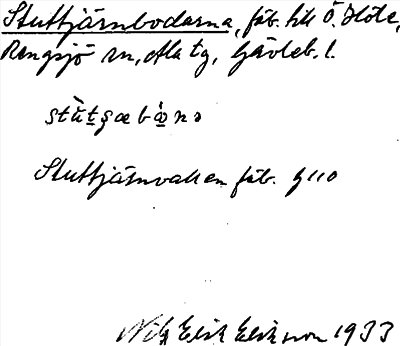 Stuttjärnbodarna, fäb. till Ö. Höle,
Rengsjö sn, Ala tg, Gävleb. l.
Stuttjärnvallen fäb. g 110
Nils Erik Eriksson 1933